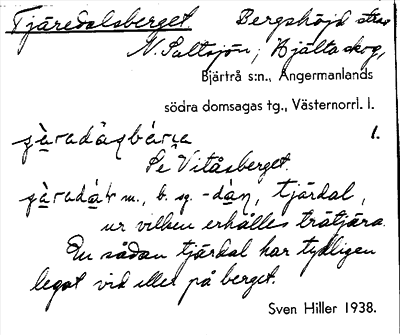 Tjäredalsberget Bergshöjd strax
N. Saltsjön, Hjältaskog,
Bjärtrå s:n., Ångermanlands
södra domsagas tg., Västernorrl. l.
1.
Se Vitåsberget.
m., b. sg. -dàn, tjärdal,
ur vilken erhålles trätjära.
En sådan tjärdal har tydligen
legat vid eller på berget.
Sven Hiller 1938.